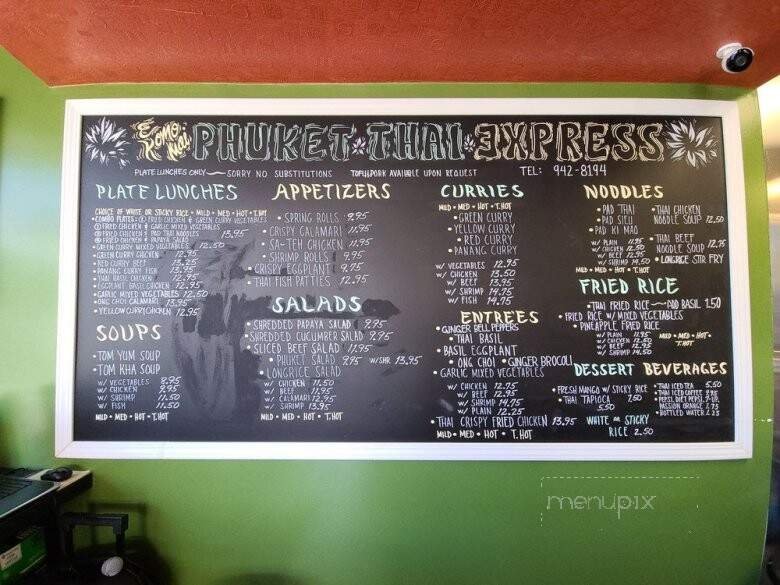 E Komo Mai PHUKET THAI EXPRESS
PLATE LUNCHES ONLY SORRY NO SUBSTITUTIONS TOFU/PORK AVAILABLE UPON REQUEST TEL: 942-8194
PLATE LUNCHES
CHOICE OF WHITE OR STICKY RICE • MILD • MED • HOT • T.HOT
COMBO PLATES: ① FRIED CHICKEN & GREEN CURRY VEGETABLES
② FRIED CHICKEN & GARLIC MIXED VEGETABLES
③ FRIED CHICKEN & PAD THAI NOODLES 13.95
④ FRIED CHICKEN & PAPAYA SALAD
GREEN CURRY MIXED VEGETABLES 12.50
GREEN CURRY CHICKEN 12.95
RED CURRY BEEF 13.25
PANANG CURRY FISH 13.95
THAI BASIL CHICKEN 12.95
EGGPLANT BASIL CHICKEN 12.95
GARLIC MIXED VEGETABLES 12.50
ONG CHOI CALAMARI 13.95
• YELLOW CURRY CHICKEN 12.95
SOUPS
• TOM YUM SOUP
• TOM KHA SOUP
W/ VEGETABLES 8.95
W/ CHICKEN 9.95
W/ SHRIMP 11.50
W/ FISH 11.50
MILD • MED • HOT • T.HOT
APPETIZERS
• SPRING ROLLS 9.95
CRISPY CALAMARI 11.95
• SA-TEH CHICKEN 11.95
SHRIMP ROLLS 9.95
• CRISPY EGGPLANT 9.75
THAI FISH PATTIES 12.95
SALADS
• SHREDDED PAPAYA SALAD 9.95
SHREDDED CUCUMBER SALAD 9.95
• SLICED BEEF SALAD 11.95
• PHUKET SALAD 9.95 W/SHR. 13.95
• LONGRICE SALAD
W/ CHICKEN 11.50
W/ BEEF 11.95
W/ CALAMARI 12.95
W/ SHRIMP 13.95
MILD • MED • HOT • T.HOT
CURRIES
MILD • MED • HOT • T.HOT
• GREEN CURRY
YELLOW CURRY
• RED CURRY
• PANANG CURRY
W/ VEGETABLES 12.95
W/ CHICKEN 13.50
W/ BEEF 13.95
W/ SHRIMP 14.75
W/ FISH 14.75
ENTREES
• GINGER BELL PEPPERS
• THAI BASIL
• BASIL EGGPLANT
• ONG CHOI • GINGER BROCOLI
GARLIC MIXED VEGETABLES
W/ CHICKEN 12.75
W/ BEEF 12.95
W/ SHRIMP 14.75
W/ PLAIN 12.25
• THAI CRISPY FRIED CHICKEN 13.95
MILD • MED • HOT • T.HOT
NOODLES
• PAD THAI
• PAD SIEU
• PAD KI MAO
W/ PLAIN 11.95
W/ CHICKEN 12.50
W/ BEEF 12.95
W/ SHRIMP 14.50
MILD • MED • HOT • T.HOT
• THAI CHICKEN NOODLE SOUP 12.50
• THAI BEEF NOODLE SOUP 12.75
• LONGRICE STIR FRY
FRIED RICE
• THAI FRIED RICE ADD BASIL 1.50
• FRIED RICE W/ MIXED VEGETABLES
• PINEAPPLE FRIED RICE
W/ PLAIN 11.95
W/ CHICKEN 12.50
W/ BEEF 12.95
W/ SHRIMP 14.50
MILD • MED • HOT • T.HOT
DESSERT
• FRESH MANGO W/ STICKY RICE 7.50
• THAI TAPIOCA 5.50
WHITE OR STICKY RICE 2.50
BEVERAGES
• THAI ICED TEA 5.50
• THAI ICED COFFEE
PASSION ORANGE 2.75
• BOTTLED WATER
menupix